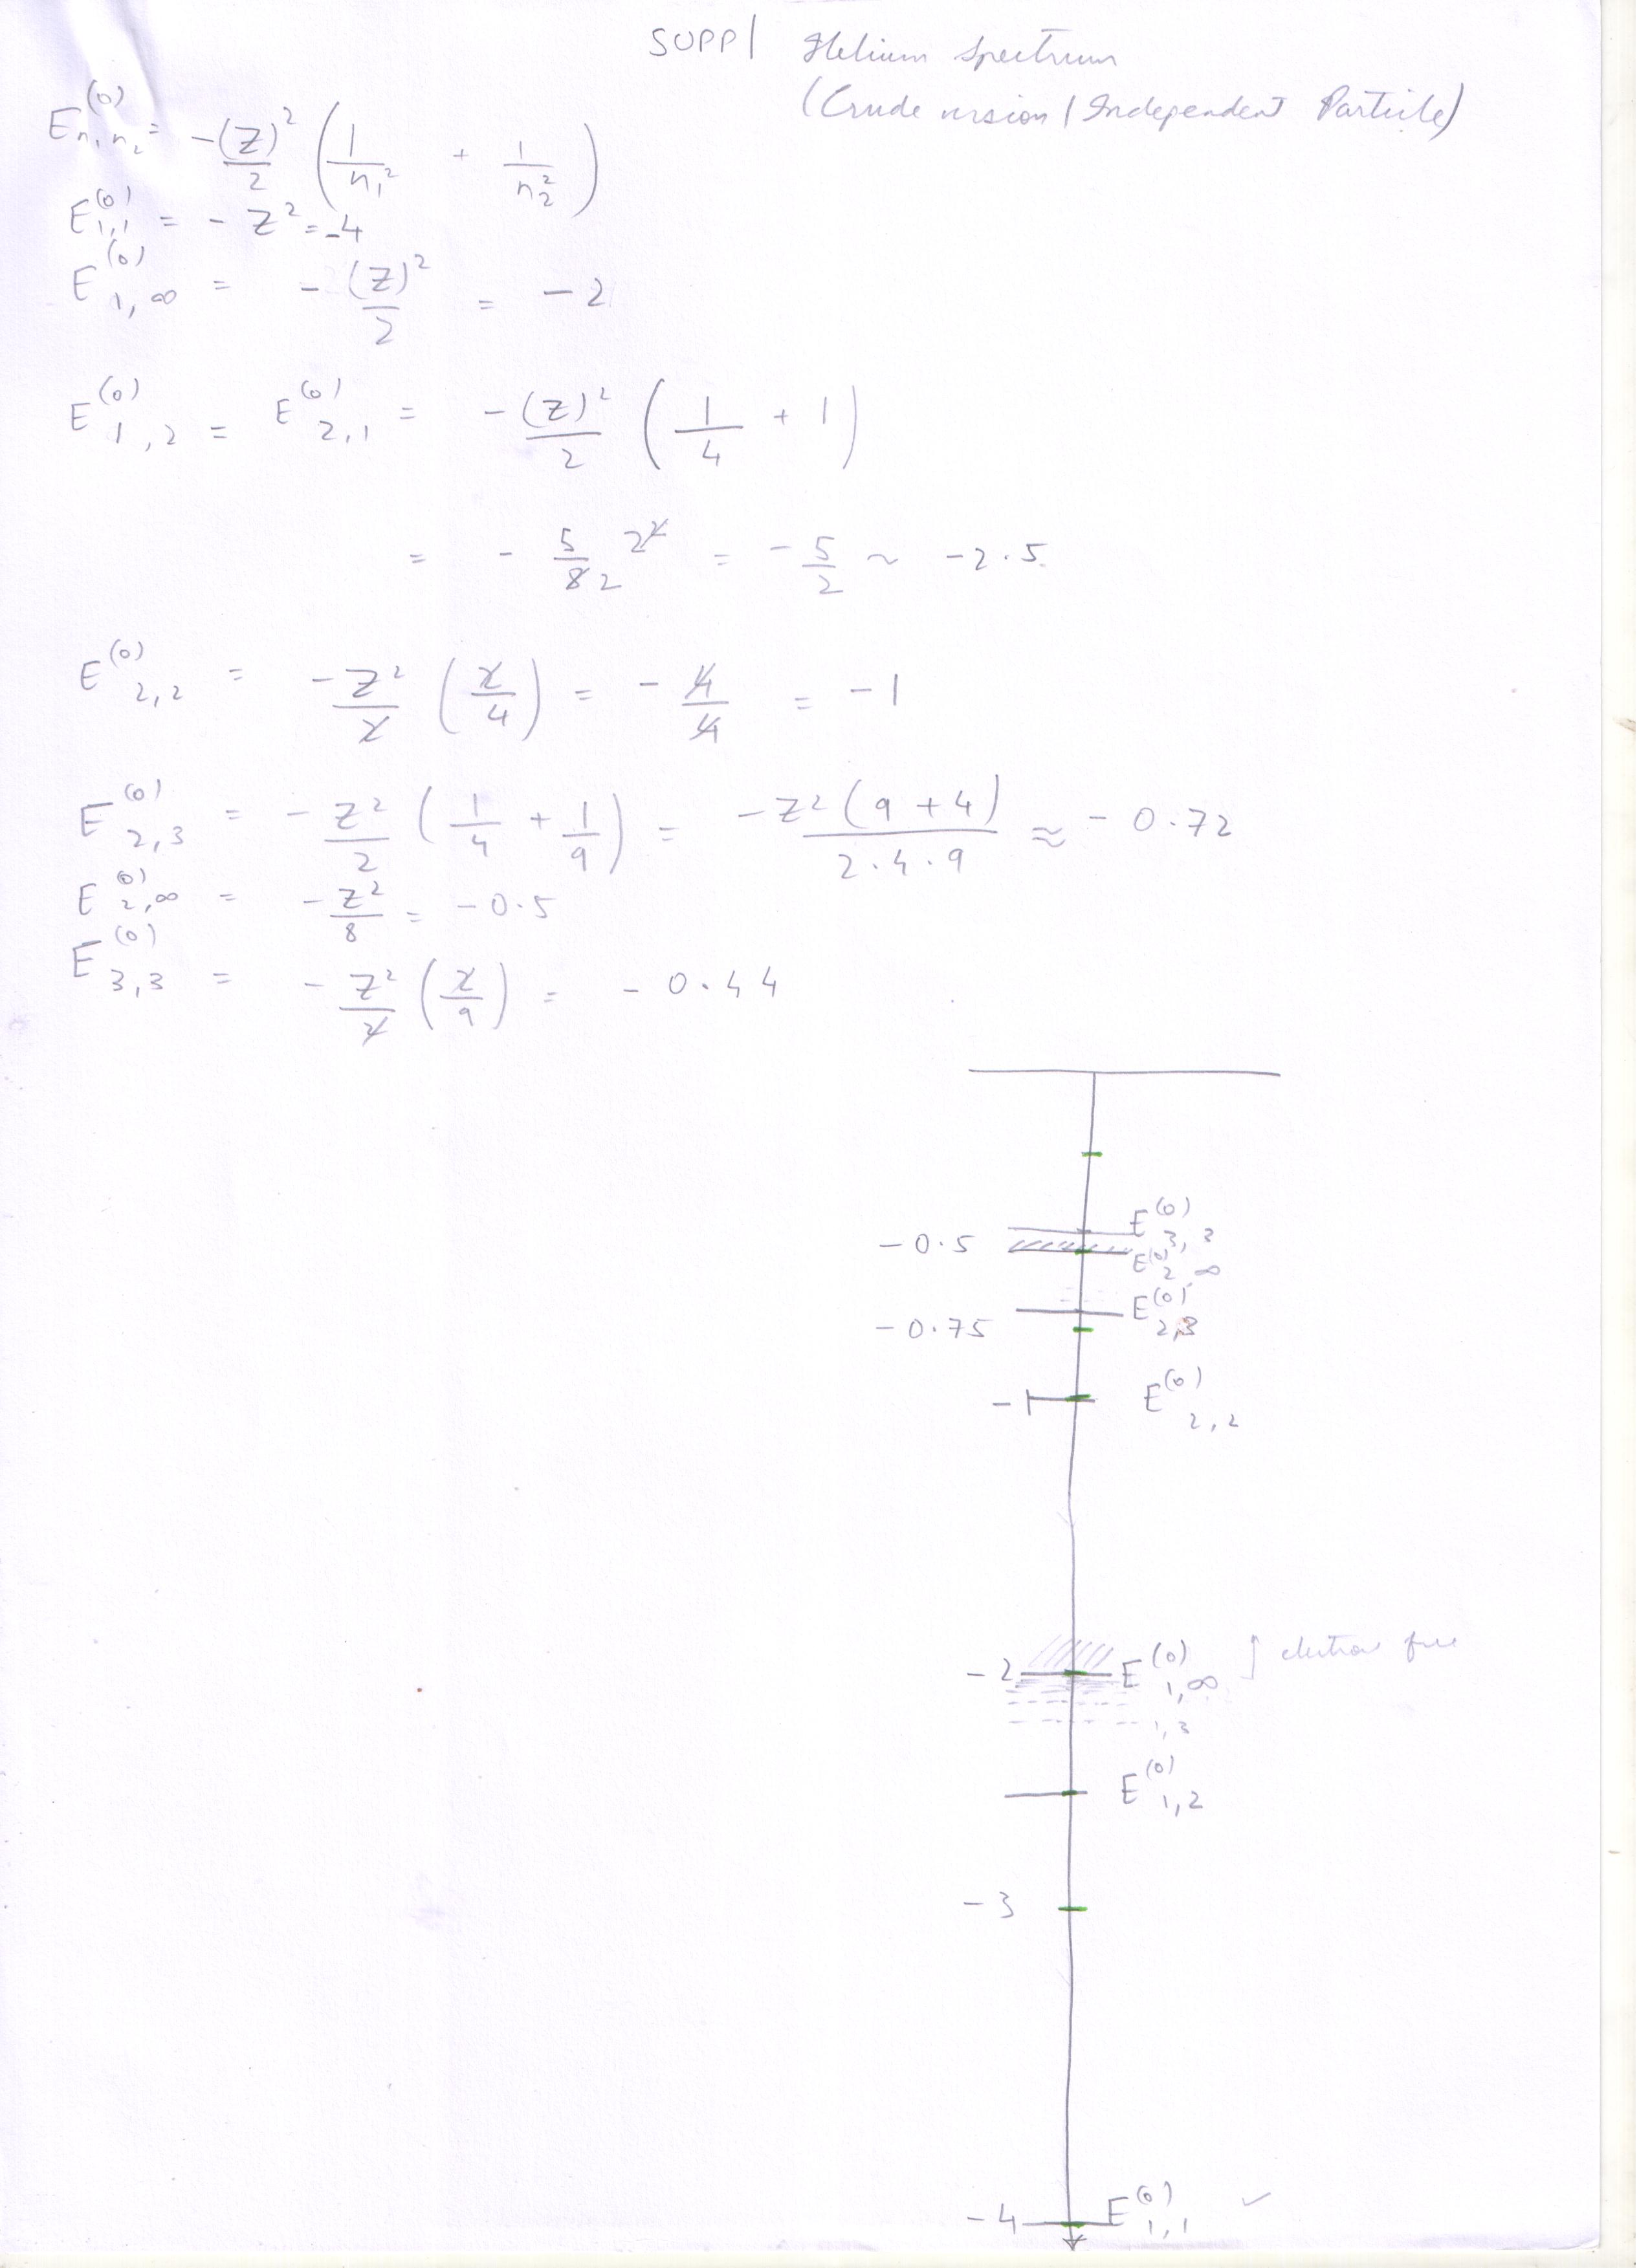 SUPP| Helium Spectrum
(Crude version / Independent Particle)
E^{(0)}_{n_1 n_2} = -(Z)^2/2 (1/n_1^2 + 1/n_2^2)
E^{(0)}_{1,1} = - Z^2 = -4
E^{(0)}_{1,∞} = - (Z)^2/2 = - 2
E^{(0)}_{1,2} = E^{(0)}_{2,1} = -(Z)^2/2 (1/4 + 1)
= - 5/8 2 2^2 = - 5/2 ~ -2.5
E^{(0)}_{2,2} = - Z^2/2 (2/4) = - 4/4 = -1
E^{(0)}_{2,3} = - Z^2/2 (1/4 + 1/9) = -Z^2 (9 + 4)/2.4.9 ≈ - 0.72
E^{(0)}_{2,∞} = - Z^2/8 = - 0.5
E^{(0)}_{3,3} = - Z^2/2 (2/9) = - 0.44
E^{(0)}_{3,3}
-0.5
E^{(0)}_{2,∞}
E^{(0)}_{2,3}
-0.75
-1 E^{(0)}_{2,2}
-2 E^{(0)}_{1,∞} electron free
1,3
E^{(0)}_{1,2}
-3
-4 E^{(0)}_{1,1} ✓